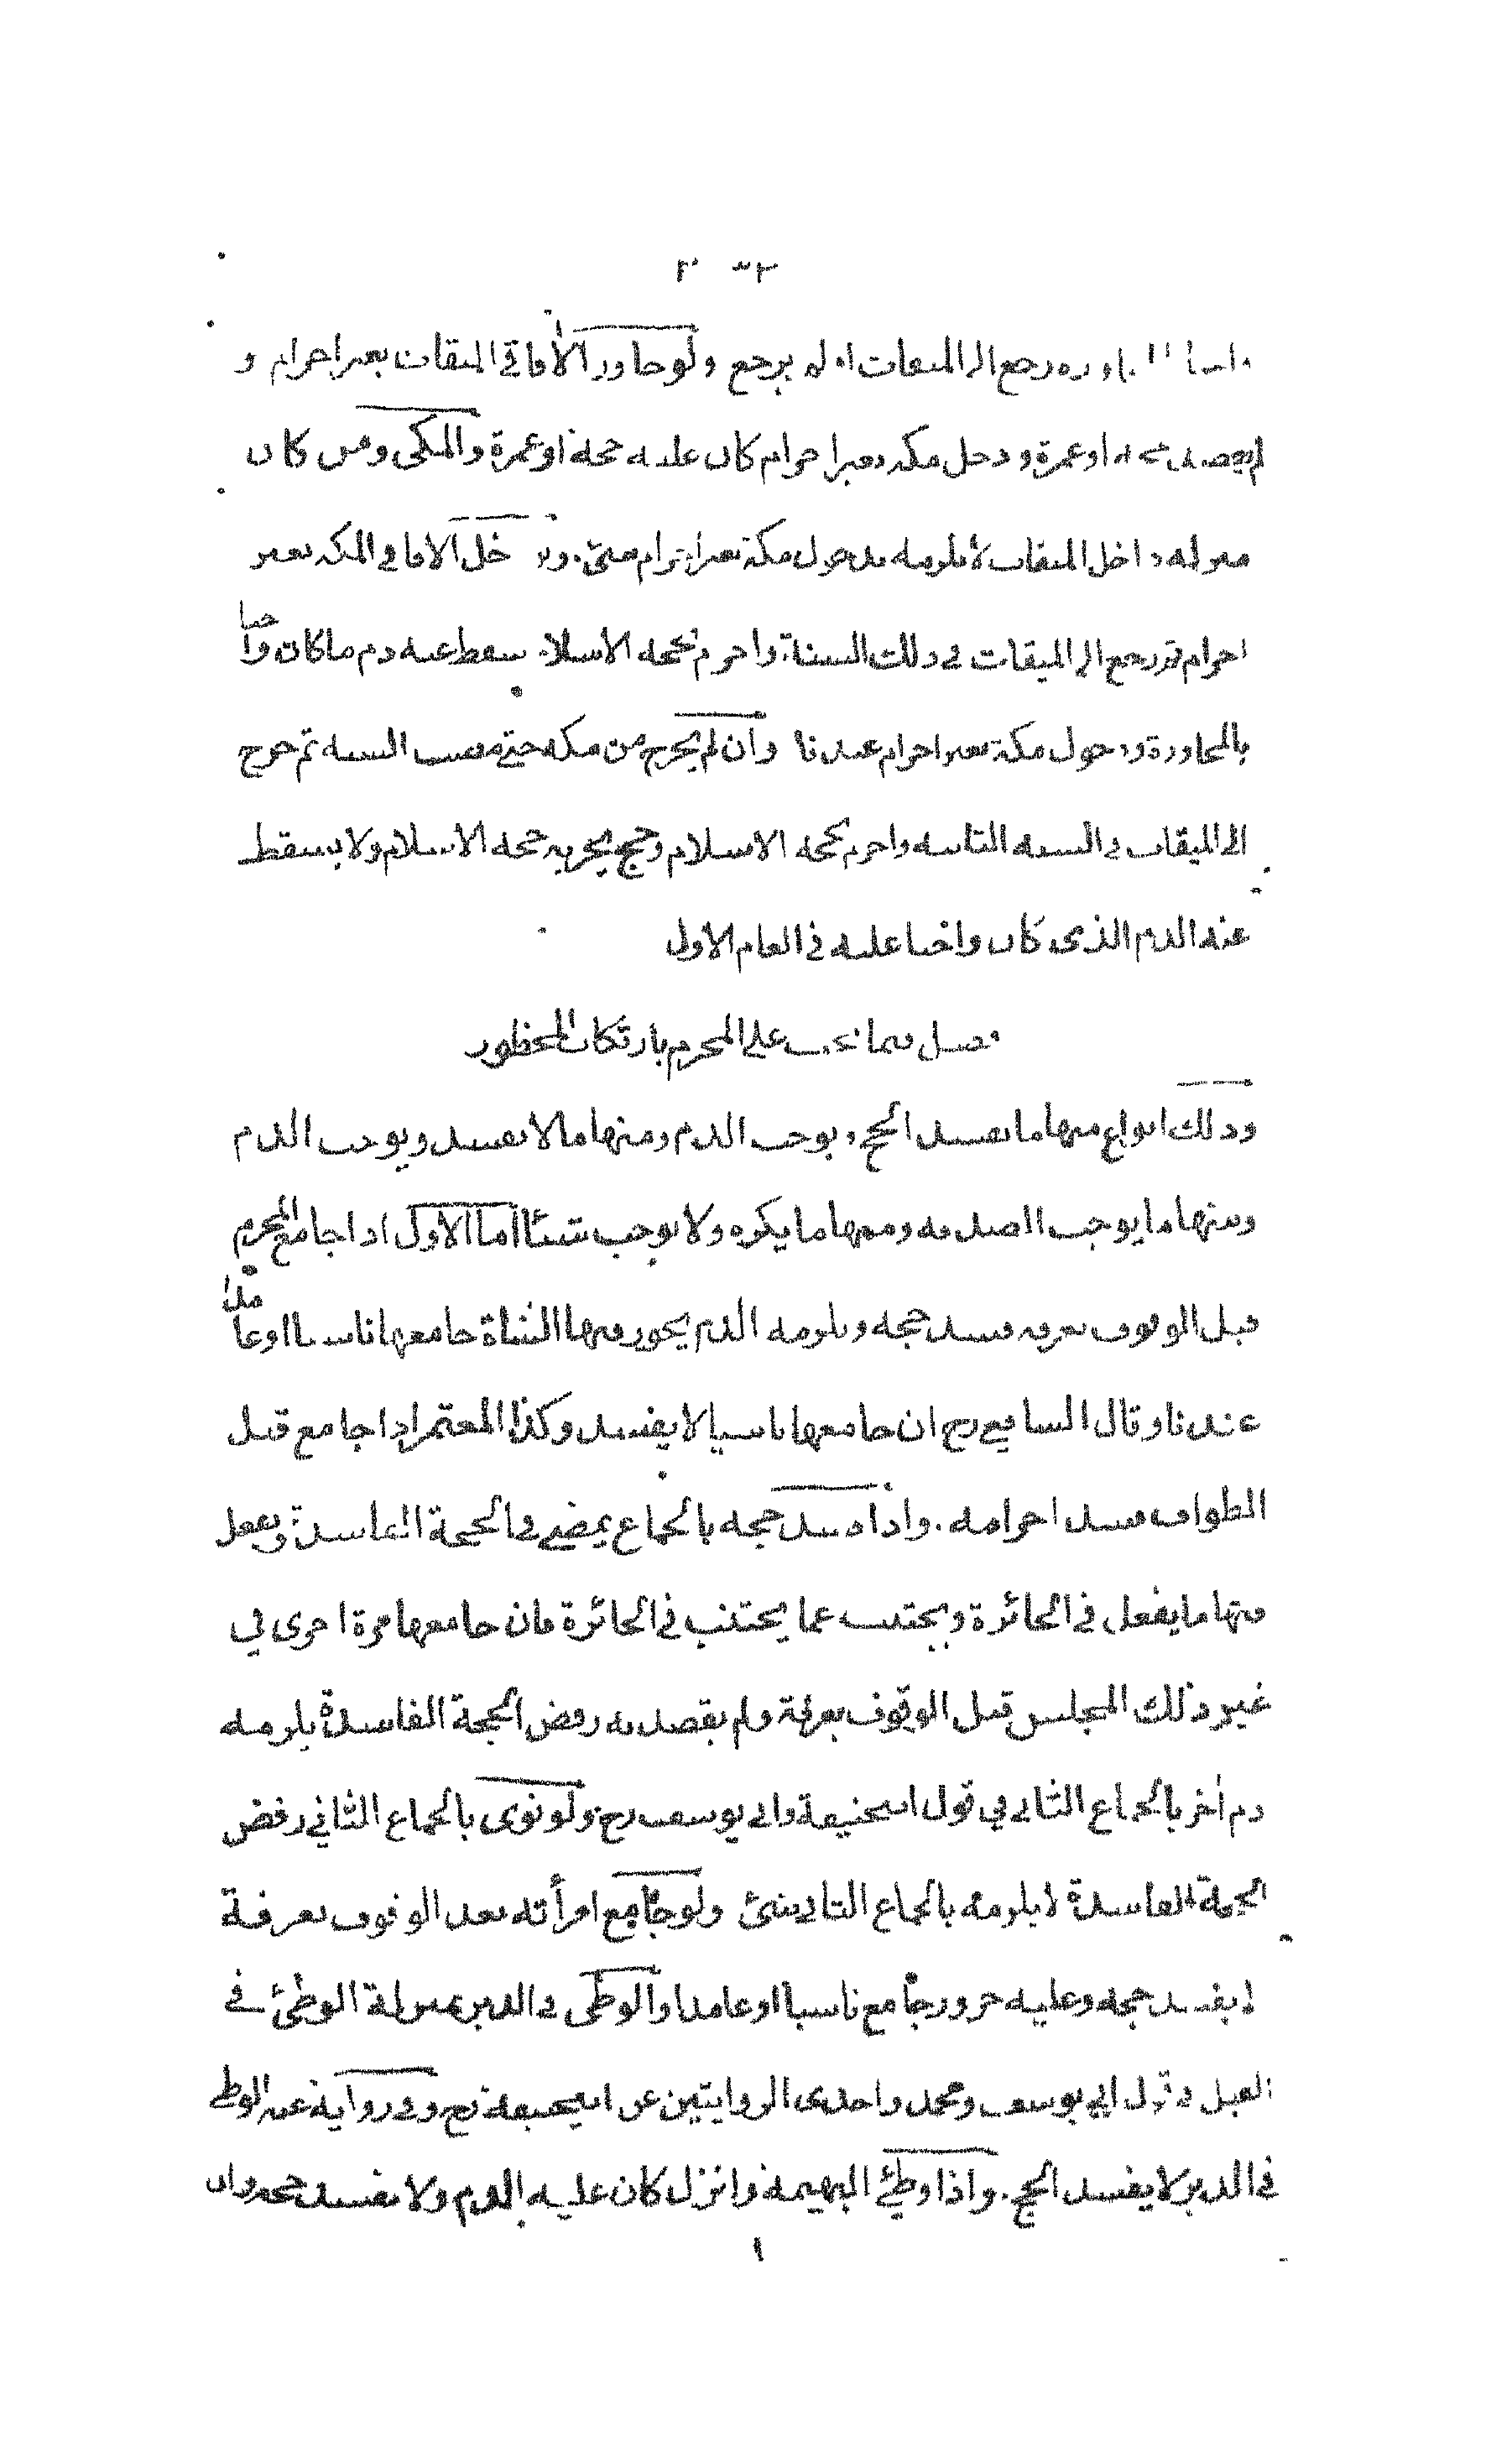 رجع الى الميقات او لم يرجع ولو جاوز الآفاقي الميقات بغير احرام و
لم يقصد حجة او عمرة ودخل مكة بغير احرام كان عليه حجة او عمرة والمكى ومن كان
منزله داخل الميقات لا يلزمه بدخول مكة بغير احرام شئ دخل الافاقي المكة بغير
احرام رجع الى الميقات في ذلك السنة واحرم بحجة الاسلام يسقط عنه دم ما كان واجبا
بالمجاوزة ودخول مكة بغير احرام عندنا وان لم يخرج من مكة حتى مضت السنة ثم خرج
الى الميقات في السنة الثانية واحرم بحجة الاسلام وحج يجزيه حجة الاسلام ولا يسقط
عنه الدم الذى كان واجبا عليه في العام الاول
فصل فيما يجب على المحرم بارتكاب المحظور
وذلك انواع منها ما يفسد الحج ويوجب الدم ومنها ما لا يفسد ويوجب الدم
ومنها ما يوجب الصدقة ومنها ما يكره ولا يوجب شيئا اما الاول اذا جامع المحرم
قبل الوقوف بعرفة فسد حجه ويلزمه الدم يجوز فيها الشاة جامعها ناسيا او عامدا
عندنا وقال الشافعي رح ان جامعها ناسيا لا يفسد وكذا المعتمر اذا جامع قبل
الطواف فسد احرامه. واذا فسد حجه بالجماع يمضي في الحجة الفاسدة ويفعل
فيها ما يفعل في الجائزة ويجتنب عما يجتنب في الجائزة فان جامعها مرة اخرى في
غير ذلك المجلس قبل الوقوف بعرفة ولم يقصد به رفض الحجة الفاسدة يلزمه
دم آخر بالجماع الثاني في قول ابيحنيفة وابي يوسف رح ولو نوى بالجماع الثاني رفض
الحجة الفاسدة لا يلزمه بالجماع الثاني شئ ولو جامع امرأته بعد الوقوف بعرفة
لا يفسد حجه وعليه جزور جامع ناسيا او عامدا والوطى في الدبر بمنزلة الوطئ في
القبل في قول ابي يوسف ومحمد واحدى الروايتين عن ابيحنيفة رح وفي رواية عنه الوطى
في الدبر لا يفسد الحج. واذا وطئ البهيمة وانزل كان عليه الدم ولا يفسد حجه وان